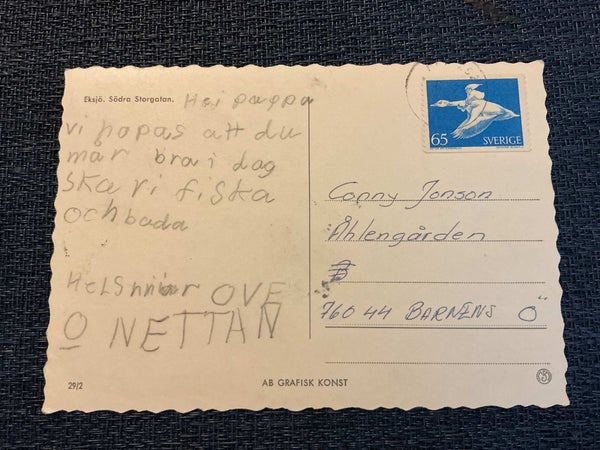 Eksjö. Södra Storgatan.
Hei pappa
vi hopas att du
mår bra i dag
ska vi fiska
och bada
OVE
O NETTAN
29/2
AB GRAFISK KONST
65 SVERIGE
Conny Jonson
Åhlengården
760 44 BARNENS Ö